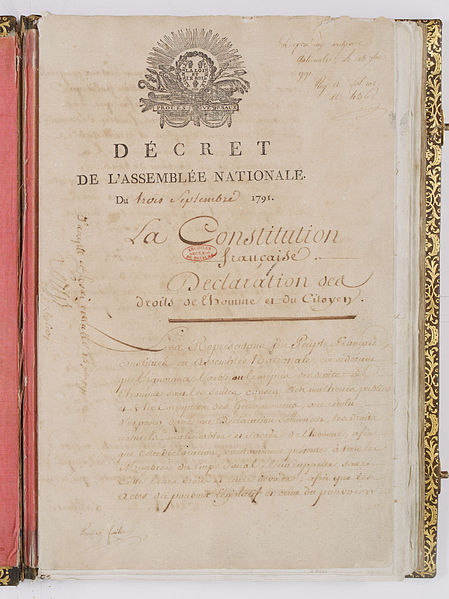 LA LOI
LE ROI
PROCES VERBAUX
DÉCRET
DE L'ASSEMBLÉE NATIONALE.
Du trois Septembre 1791.
La Constitution
française.
Déclaration des
droits de l'homme et du Citoyen.
Les Représentans du Peuple français
constitués en Assemblée Nationale, considérant
que l'ignorance, l'oubli ou le mépris des droits de
l'homme sont les seules causes des malheurs publics
et de la Corruption des Gouvernemens, ont résolu
d'exposer dans une Déclaration solemnelle, les droits
naturels, inaliénables et sacrés de l'homme, afin
que cette déclaration, constamment présente à tous les
Membres du Corps Social, leur rappelle sans
cesse leurs droits et leurs devoirs; afin que les
Actes du pouvoir législatif et ceux du pouvoir